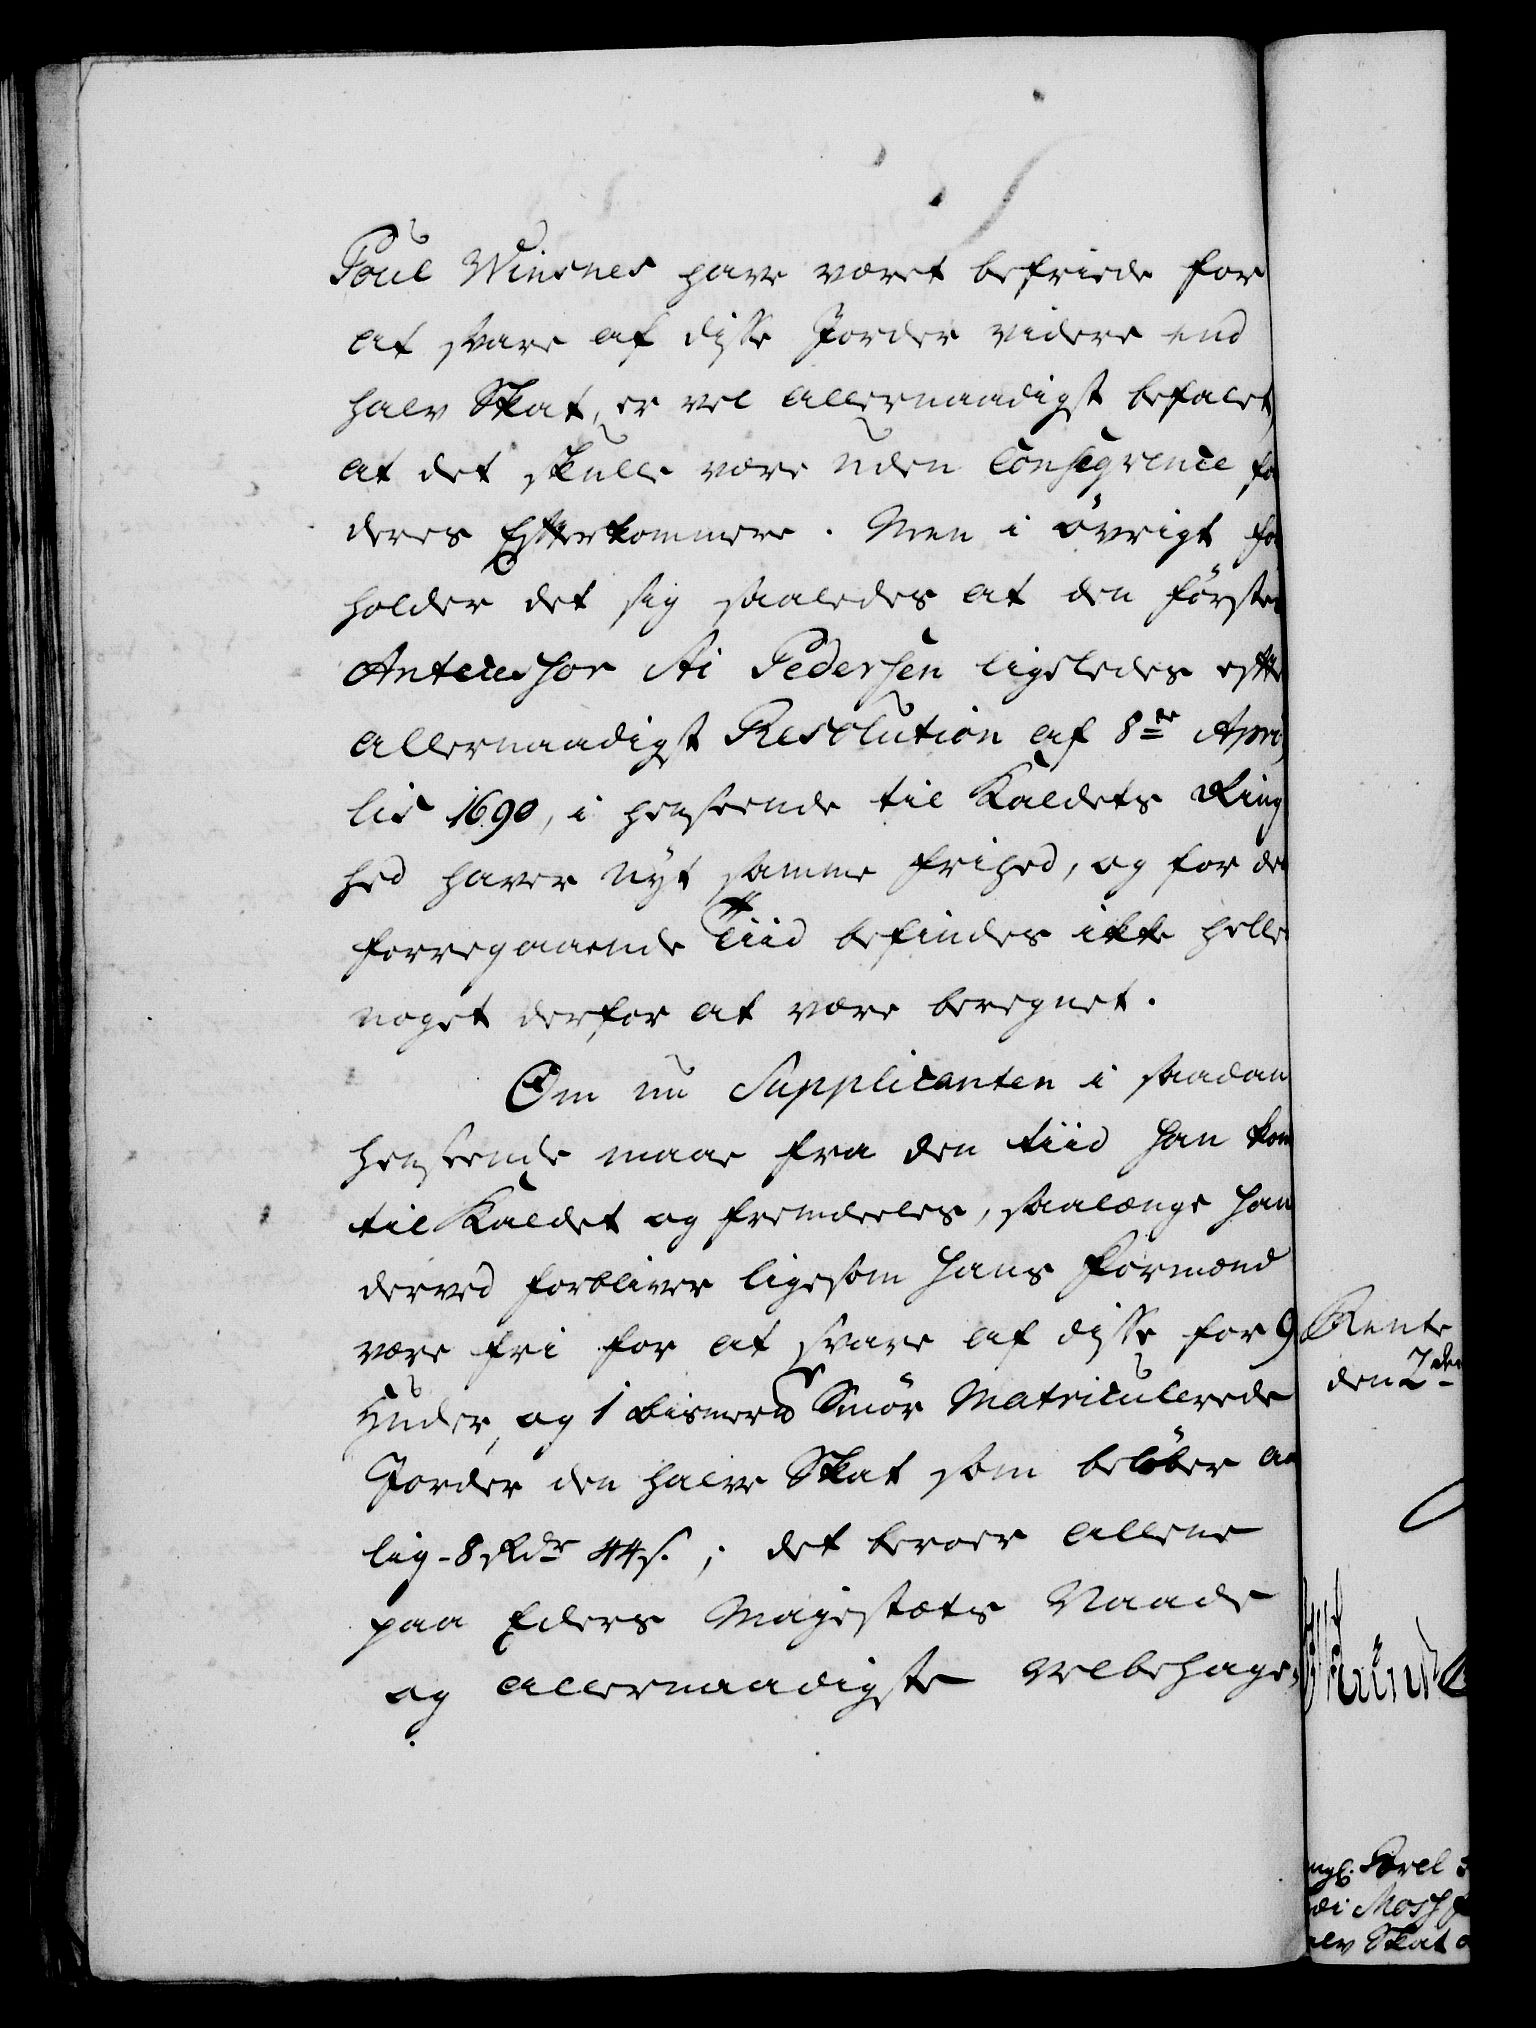 Poul Winsnes have været befriede for
at svare af disse Jorder videre end
halv Skat, er vel allernaadigst befalet,
at det skulle være uden Conseqvence for
deres Efterkommere. Men i övrigt for
holder det sig saaledes at den förste
Antecessor Ai Pedersen ligeledes efter
allernaadigst Resolution af 8de Apri
lis 1690, i henseende til Kaldets Ring
hed haver nÿt samme frihed, og for den
forregaaende Tiid befindes ikke heller
noget derfor at være beregnet.
Om nu Supplicanten i saadan
henseende maae fra den tiid han kom
til Kaldet og fremdeeles, saalænge han
derved forbliver ligesom hans Formænd
være fri for at svare af disse for 9
Huder, og 1 Bismerp Smör Matriculerede
Jorder den halve Skat som belöber aar
lig - 8 Rdr 44 s.; det beroer allene
paa Eders Majestæts Naade
og allernaadigste Velbehage,
Rente
den 2den
Parel
Mossf
alv Skat